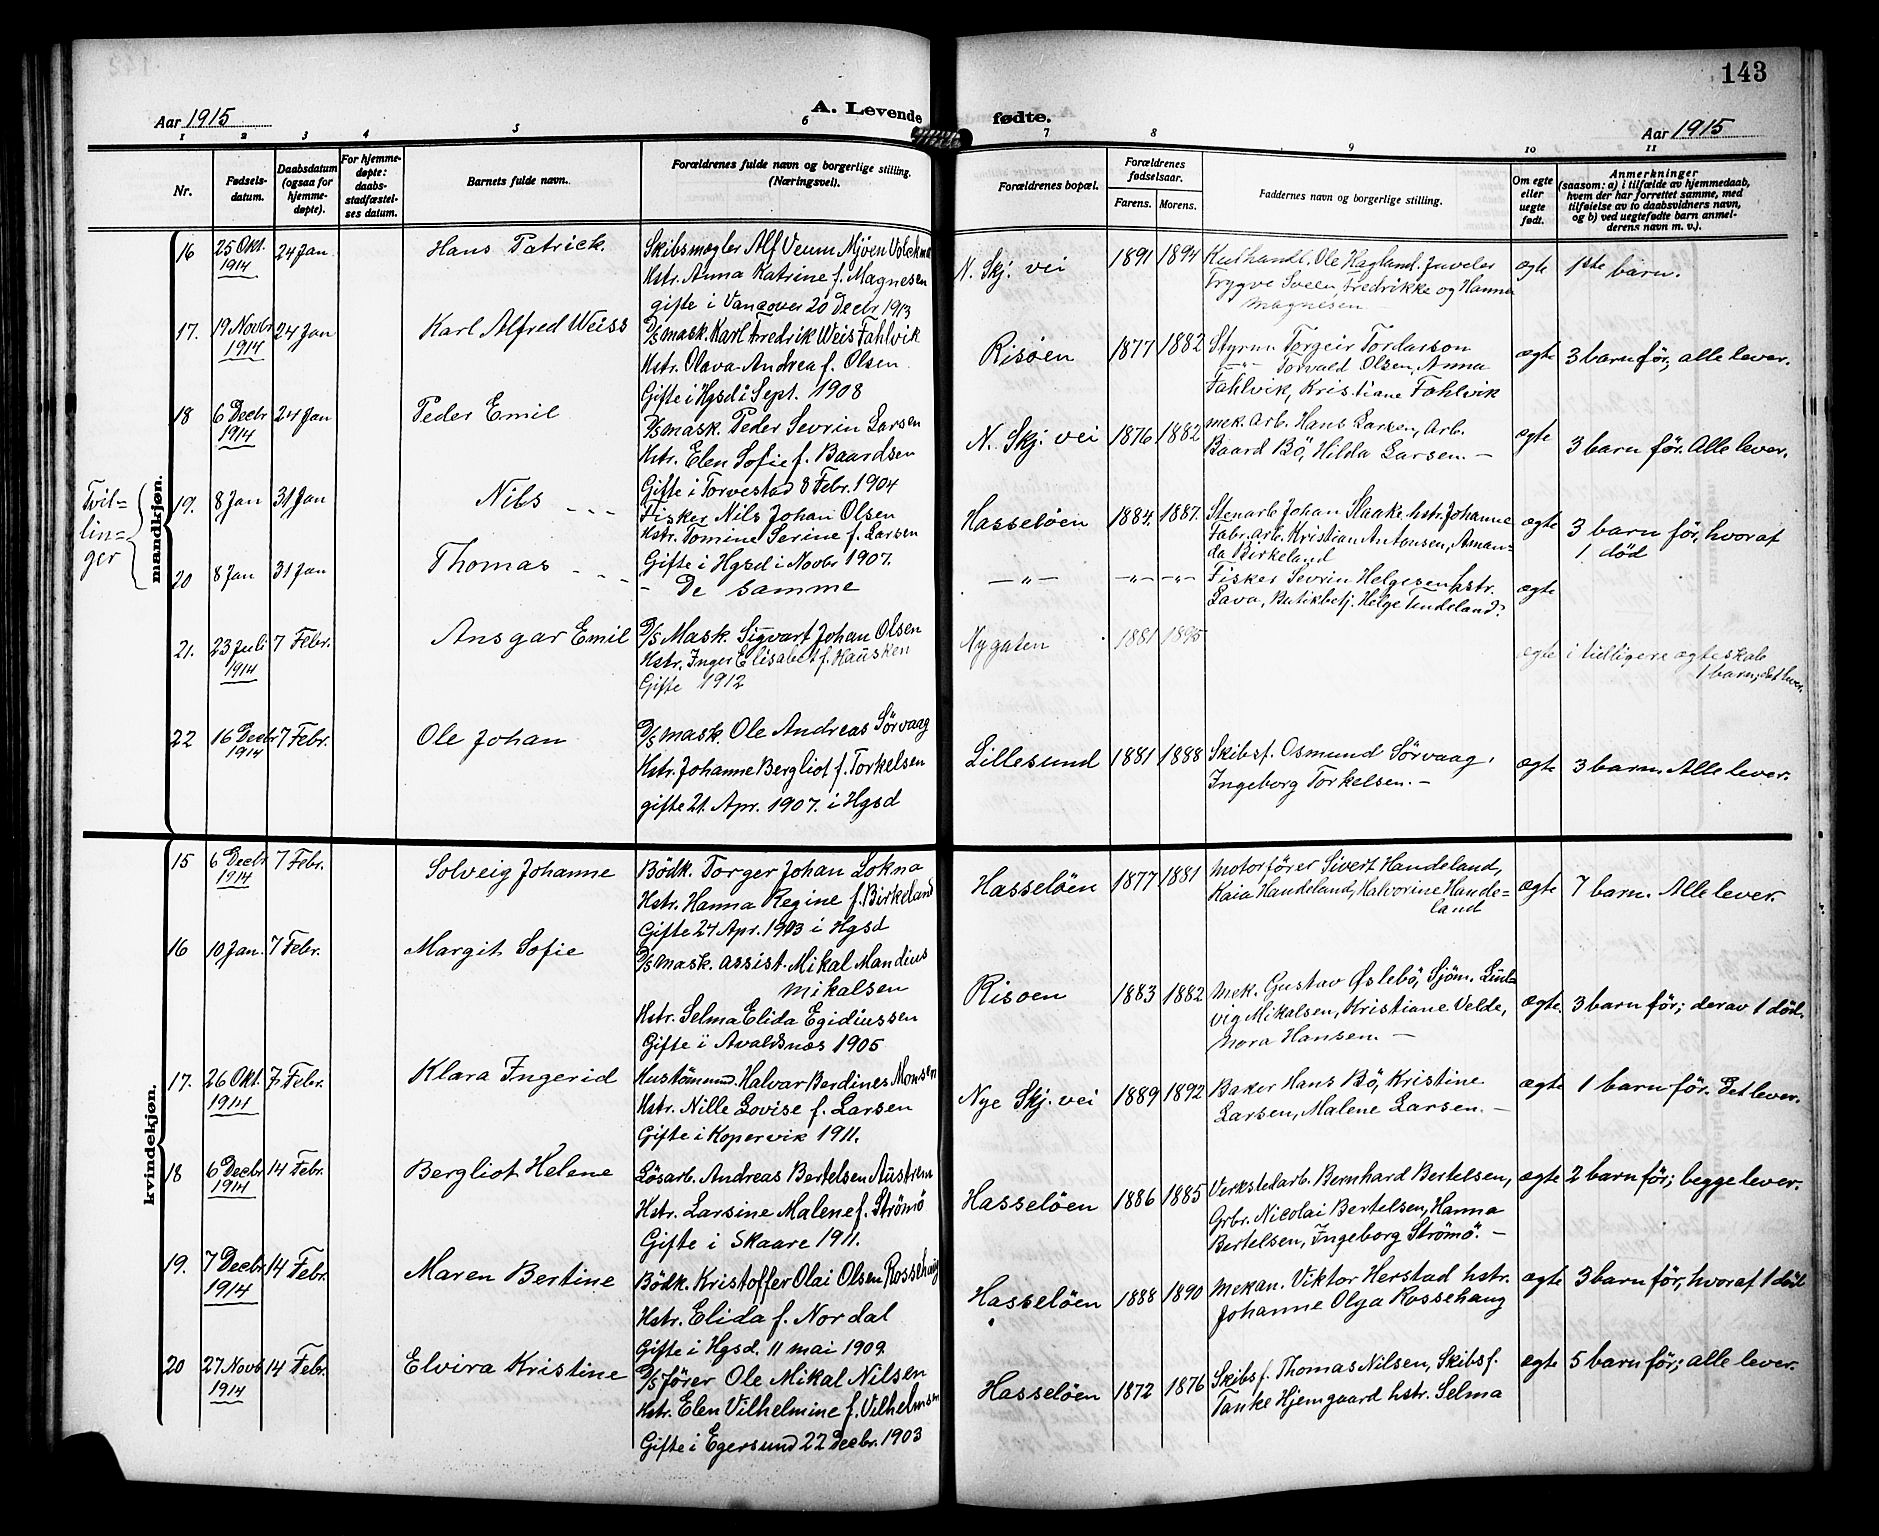 143
Aar 1915
A. Levende
fødte.
Aar 1915
1 2 3 4 5 6 7 8 9 10 11
Nr.
Fødsels-
datum.
Daabsdatum
(ogsaa for
hjemme-
døpte).
For hjemme-
døpte:
daabs-
stadfæstel-
ses datum.
Barnets fulde navn.
Forældrenes fulde navn og borgerlige stilling.
(Næringsvei).
Forældrenes bopæl.
Forældrenes
fødselsaar.
Farens. Morens.
Faddernes navn og borgerlige stilling.
Om egte
eller
uegte
født.
Anmerkninger
(saasom: a) i tilfælde av hjemmedaab,
hvem der har forrettet samme, med
tilføielse av to daabsvidners navn,
og b) ved uegtefødte barn anmel-
derens navn m. v.).
mandkjøn.
16 25 Okt. 1914 24 Jan Hans Patrick.
Skibsmægler Alf Veum Mjöen
Hstr. Anna Katrine f. Magnesen
gifte i Vancover 20 Decbr 1913
N. Skj. vei 1891 1894
Kulhandl. Ole Hagland. Juveler
Trygve Sveen, Fredrikke og Hanna
Magnesen
ægte 1ste barn.
17. 19 Novbr 1914 24 Jan Karl Alfred Weiss
D/S mask. Karl Fredrik Weis Fahlvik
Hstr. Olava Andrea f. Olsen
Gifte i Hgsd i Sept. 1908
Risöen 1877 1882
Styrm. Torgeir Tordasson
-"- Torvald Olsen, Anna
Fahlvik, Kristiane Fahlvik
ægte 3 barn för, alle lever.
18 6 Decbr 1914 24 Jan Peder Emil
D/S mask. Peder Sevrin Larsen
Hstr. Elen Sofie f. Baardsen
Gifte i Torvestad 8 Febr. 1904
N. Skj. vei 1876 1882
mek. Arb. Hans Larsen, Arb.
Baard Bö, Hilda Larsen. –
ægte 3 barn för. Alle lever.
Tvil-
lin-
ger
19. 8 Jan 31 Jan Nils
Fisker Nils Johan Olsen
Hstr. Tomine Serine f. Larsen
Gifte i Hgsd i Novbr 1907.
Hasselöen 1884. 1887.
Stenarb. Johan Slaake hstr. Johanne
Fabr. arb. Kristian Antonsen, Aman-
da Birkeland
ægte 3 barn för, hvoraf
1. död
20 8 Jan 31 Jan Thomas
– De samme
– " – –"– –"–
Fisker Sevrin Helgesen hstr.
Lava, Butikbetj. Helge Tendeland.
ægte
21. 23 Juli 1914 7 Febr. Ansgar Emil
D/S Mask. Sigvart Johan Olsen
Hstr. Inger Elisabet f. Hausken
Gifte 1912
Nygaten 1881 1895
ægte i tidligere ægteskab
1 barn, det lever.
22 16 Decbr 1914 7 Febr. Ole Johan
D/S mask. Ole Andreas Sörvaag
Hstr. Johanne Bergliot f. Torkelsen
gifte 21. Apr. 1907. i Hgsd
Lillesund 1881 1888
Skibsf. Osmund Sörvaag,
Ingeborg Torkelsen. –
ægte 3 barn. Alle lever.
kvindekjøn.
15 6 Decbr 1914 7 Febr. Solveig Johanne
Bödk. Torger Johan Lokna
Hstr. Hanna Regine f. Birkeland
Gifte 24 Apr. 1903 i Hgsd
Hasselöen 1877 1881
Motorförer Sivert Handeland,
Kaia Handeland, Halvorine Hande-
land
ægte 7 barn. Alle lever.
16 10 Jan. 7 Febr. Margit Sofie
D/S mask. assist. Mikal Mandius
Mikalsen
Hstr. Selma Elida Egidiussen
Gifte i Avaldsnæs 1905
Risöen 1883 1882
Mek. Gustav Øslebö, Sjöm. Lud-
vig Mikalsen, Kristiane Velde,
Nora Hansen. –
ægte. 3 barn för; derav 1 död.
17. 26 Okt. 1914 7 Febr. Klara Ingerid
Hustömmm. Halvar Berdines Monsen
Hstr. Nille Lovise f. Larsen
Gifte i Kopervik 1911.
Nye Skj. vei 1889 1892
Baker Hans Bö, Kristine
Larsen, Malene Larsen. –
ægte 1 barn för. Det lever.
18 6 Decbr 1914 14 Febr. Bergliot Helene
Lösarb. Andreas Bertelsen Austrem
Hstr. Larsine Malene f. Strömö
Gifte i Skaare 1911.
Hasselöen 1886 1885
Verkstedarb. Bernhard Bertelsen,
Grbr. Nicolai Bertelsen, Hanna
Bertelsen, Ingeborg Strömö. –
ægte 2 barn för; begge lever.
19. 7 Decbr 1914 14 Febr. Maren Bertine
Bödk. Kristoffer Olai Olsen Rossehaug
Hstr. Elida f. Nordal
Gifte i Hgsd. 11 mai 1909.
Hasselöen 1888 1890
Mekan. Viktor Herstad hstr.
Johanne Olga Rossehaug
ægte 3 barn för, hvoraf 1 död
20 27 Novb. 1914 14 Febr. Elvira Kristine
D/S förer Ole Mikal Nilsen
Hstr. Elen Vilhelmine f. Vilhelmsen
Gifte i Egersund 22 Decbr. 1903
Hasselöen 1872 1876
Skibsf. Thomas Nilsen, Skibsf.
Tanke Hjemgaard hstr. Selma
ægte 5 barn för; alle lever.